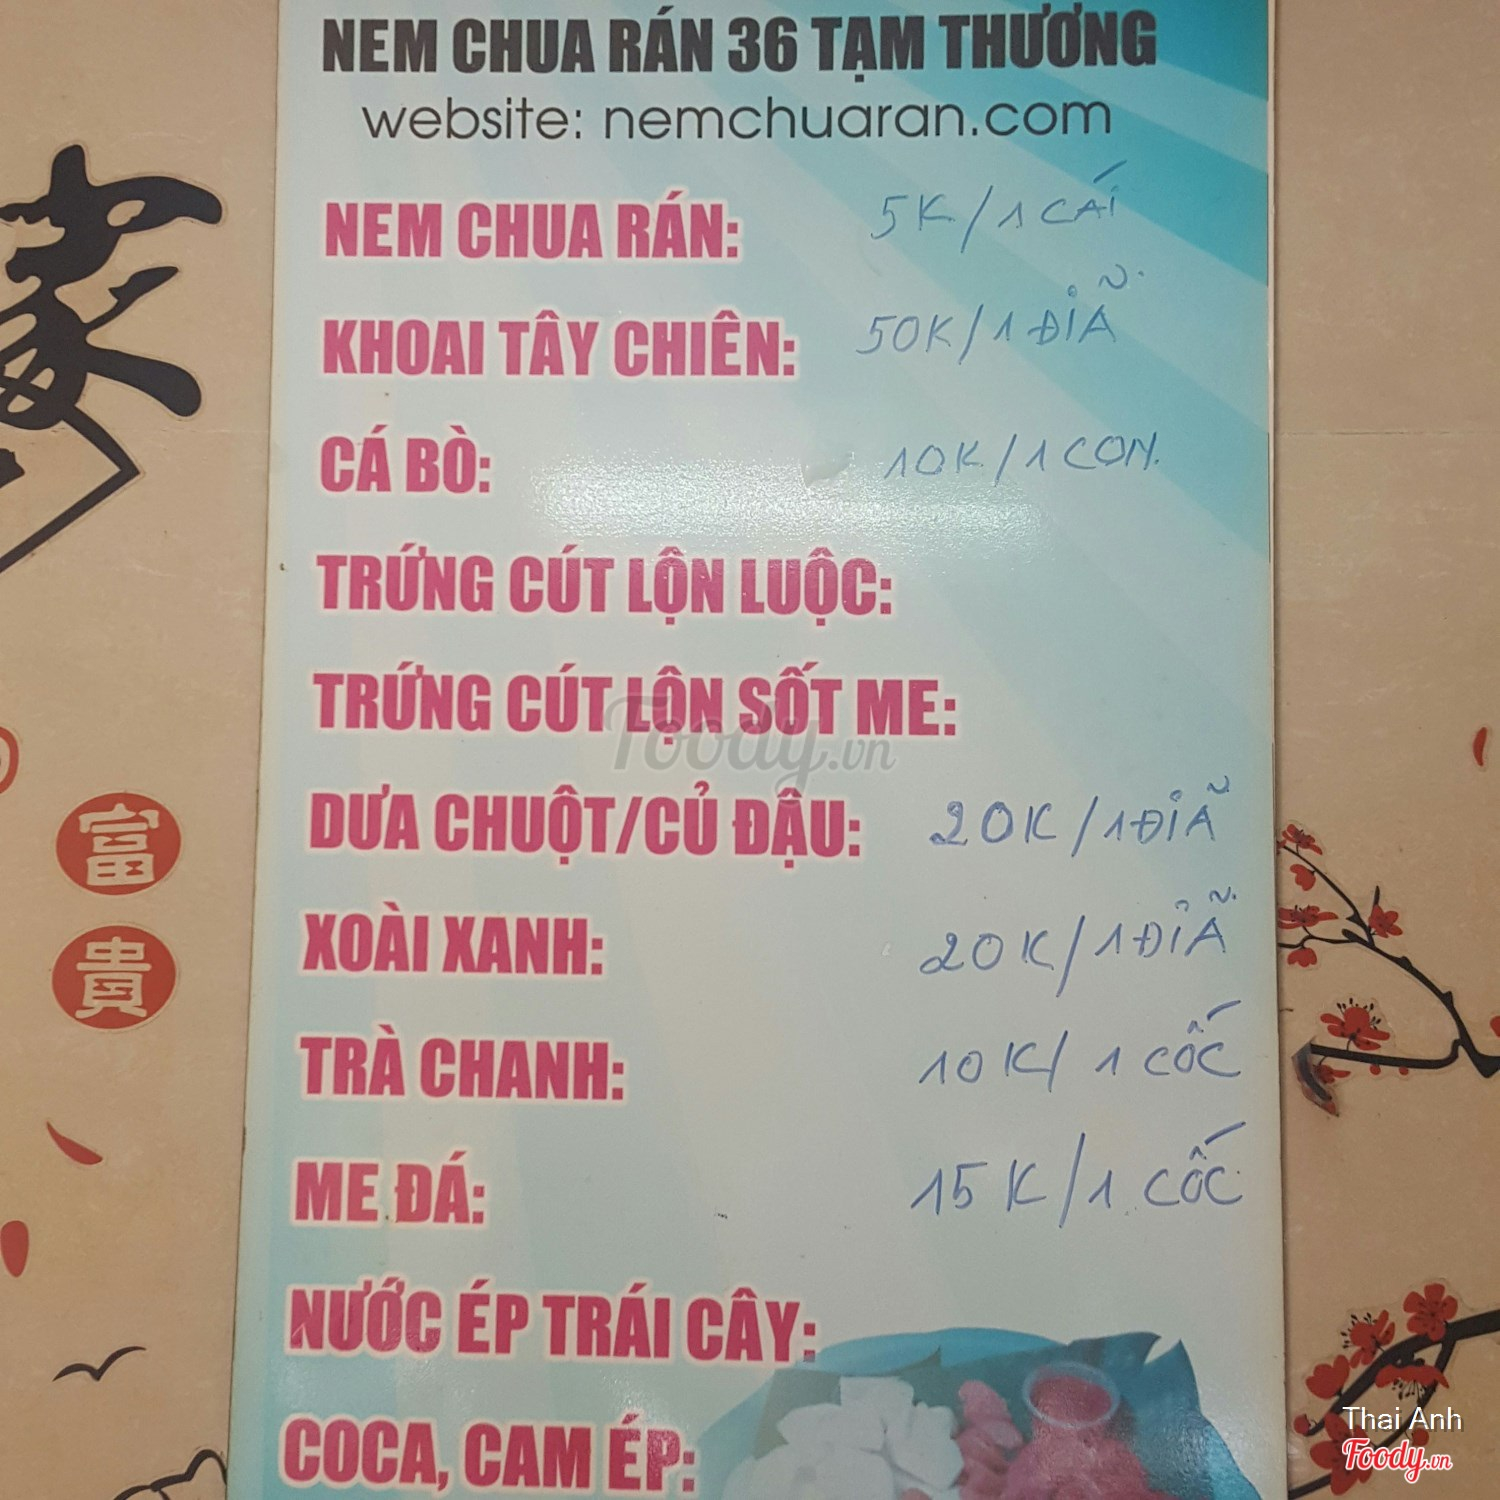 NEM CHUA RÁN 36 TẠM THƯƠNG
website: nemchuaran.com
NEM CHUA RÁN: 5K/1 CÁI
KHOAI TÂY CHIÊN: 50K/1 ĐĨA
CÁ BÒ: 10K/1 CON.
TRỨNG CÚT LỘN LUỘC:
TRỨNG CÚT LỘN SỐT ME:
Foody.vn
DƯA CHUỘT/CỦ ĐẬU: 20K/1 ĐĨA
XOÀI XANH: 20K/1 ĐĨA
TRÀ CHANH: 10K/1 CỐC
ME ĐÁ: 15K/1 CỐC
NƯỚC ÉP TRÁI CÂY:
COCA, CAM ÉP:
家
富
貴
Thai Anh
Foody.vn